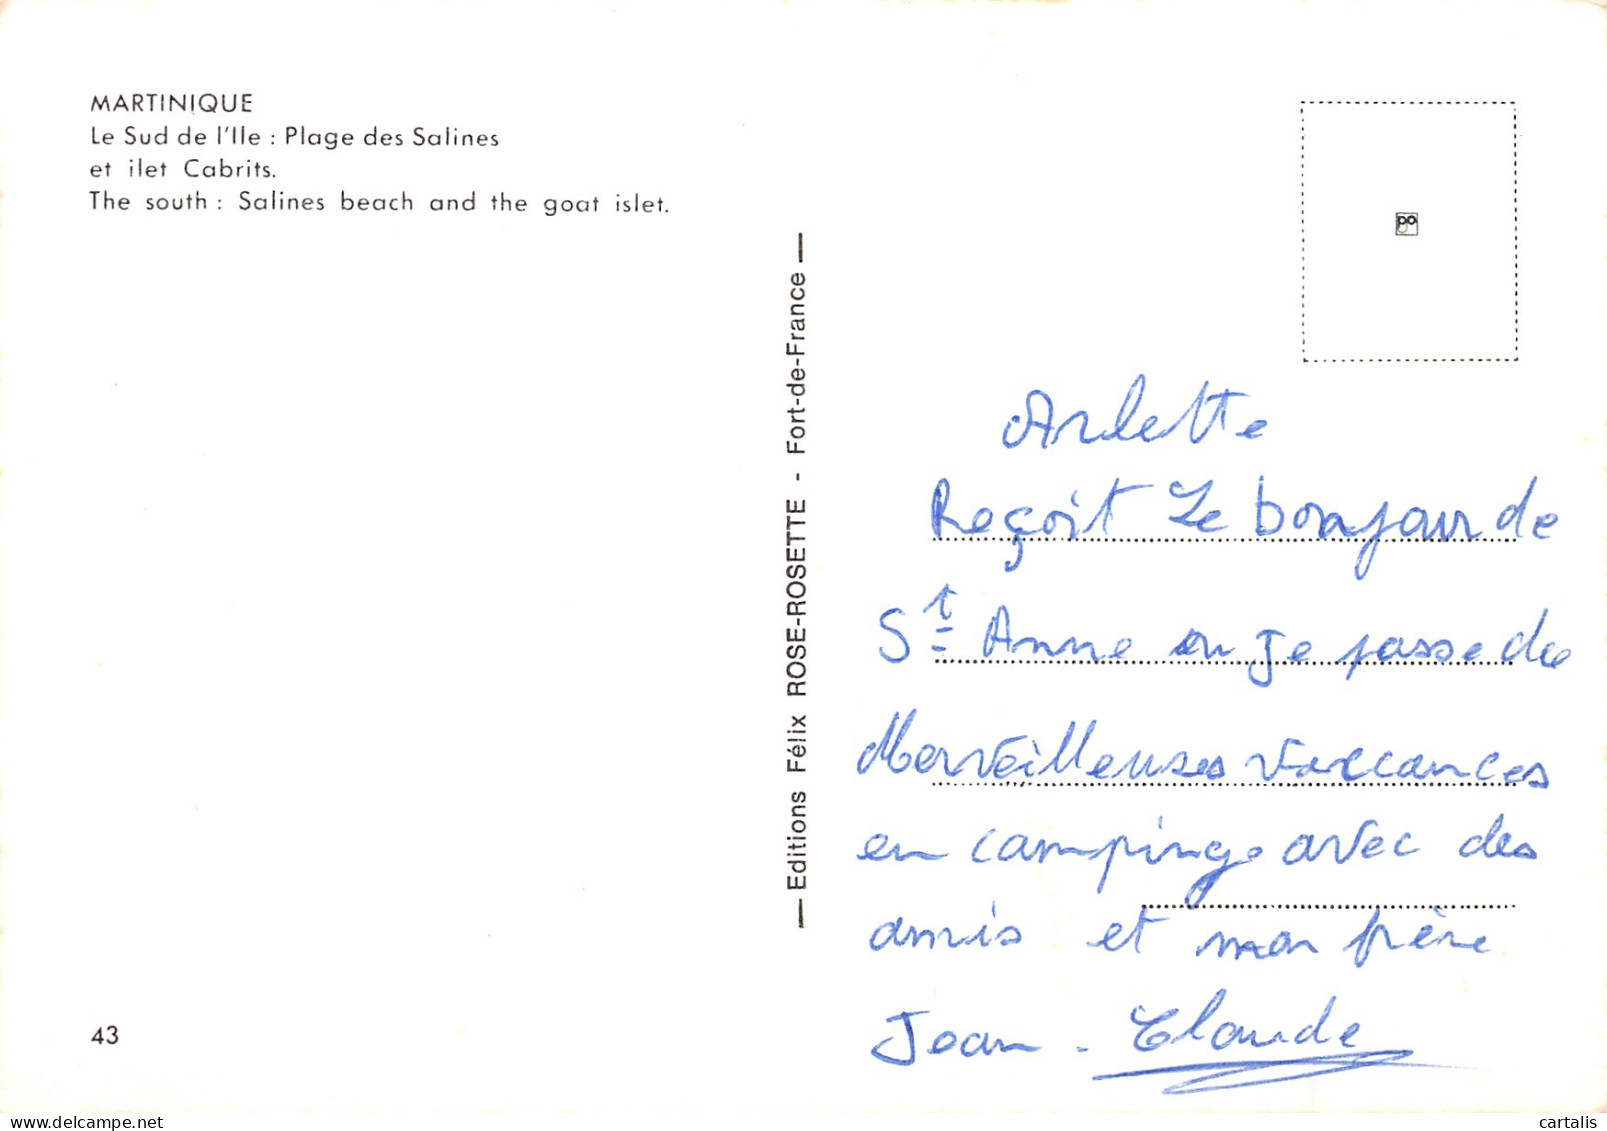 MARTINIQUE
Le Sud de l'Ile : Plage des Salines
et ilet Cabrits.
The south : Salines beach and the goat islet.
43
Editions Félix ROSE-ROSETTE - Fort-de-France
po
Arlette
Reçoit Le bonjour de
St Anne ou Je passe de
Merveilleuses vaccances
en camping avec des
amis et mon frère
Jean-Claude
delcampe.net
cartalis